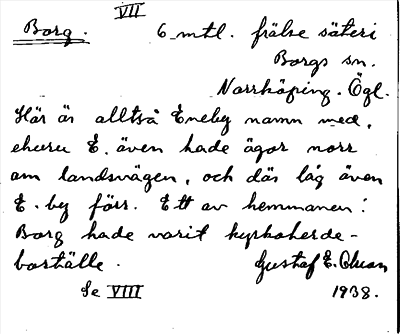 VII
Borg. 6 mtl. frälse säteri
Borgs sn.
Norrköping. Ögl.
Här är alltså Eneby namn med,
ehuru E. även hade ägor norr
om landsvägen, och där låg även
E. by förr. Ett av hemmanen i
Borg hade varit kyrkoherde-
boställe. Gustaf E. Olsson
Se VIII 1938.